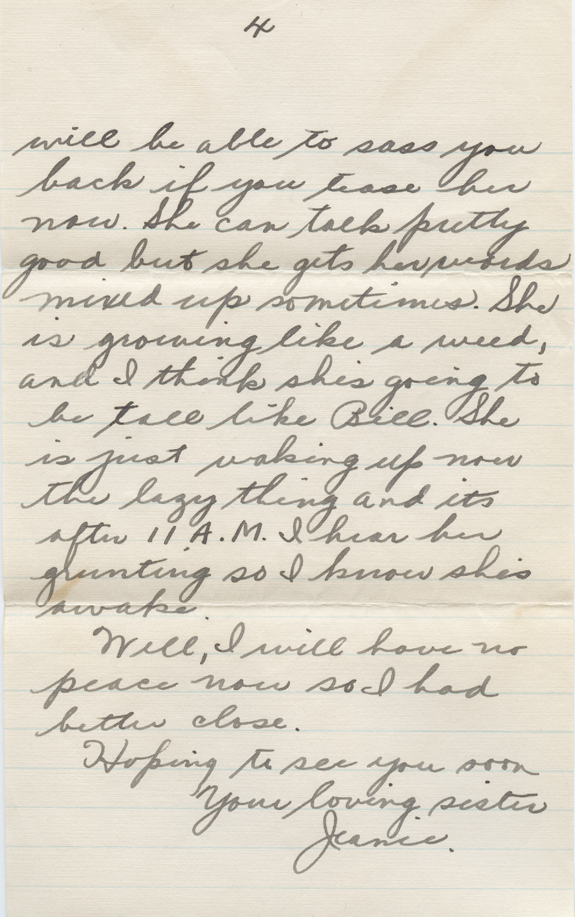 4
will be able to sass you
back if you tease her
now. She can talk pretty
good but she gets her words
mixed up sometimes. She
is growing like a weed,
and I think shis going to
be tall like Bill. She
is just waking up now
the lazy thing and its
after 11 A.M. I hear her
grunting so I know shis
awake.
Well, I will have no
peace now so I had
better close.
Hoping to see you soon
Your loving sister
Jeanie.